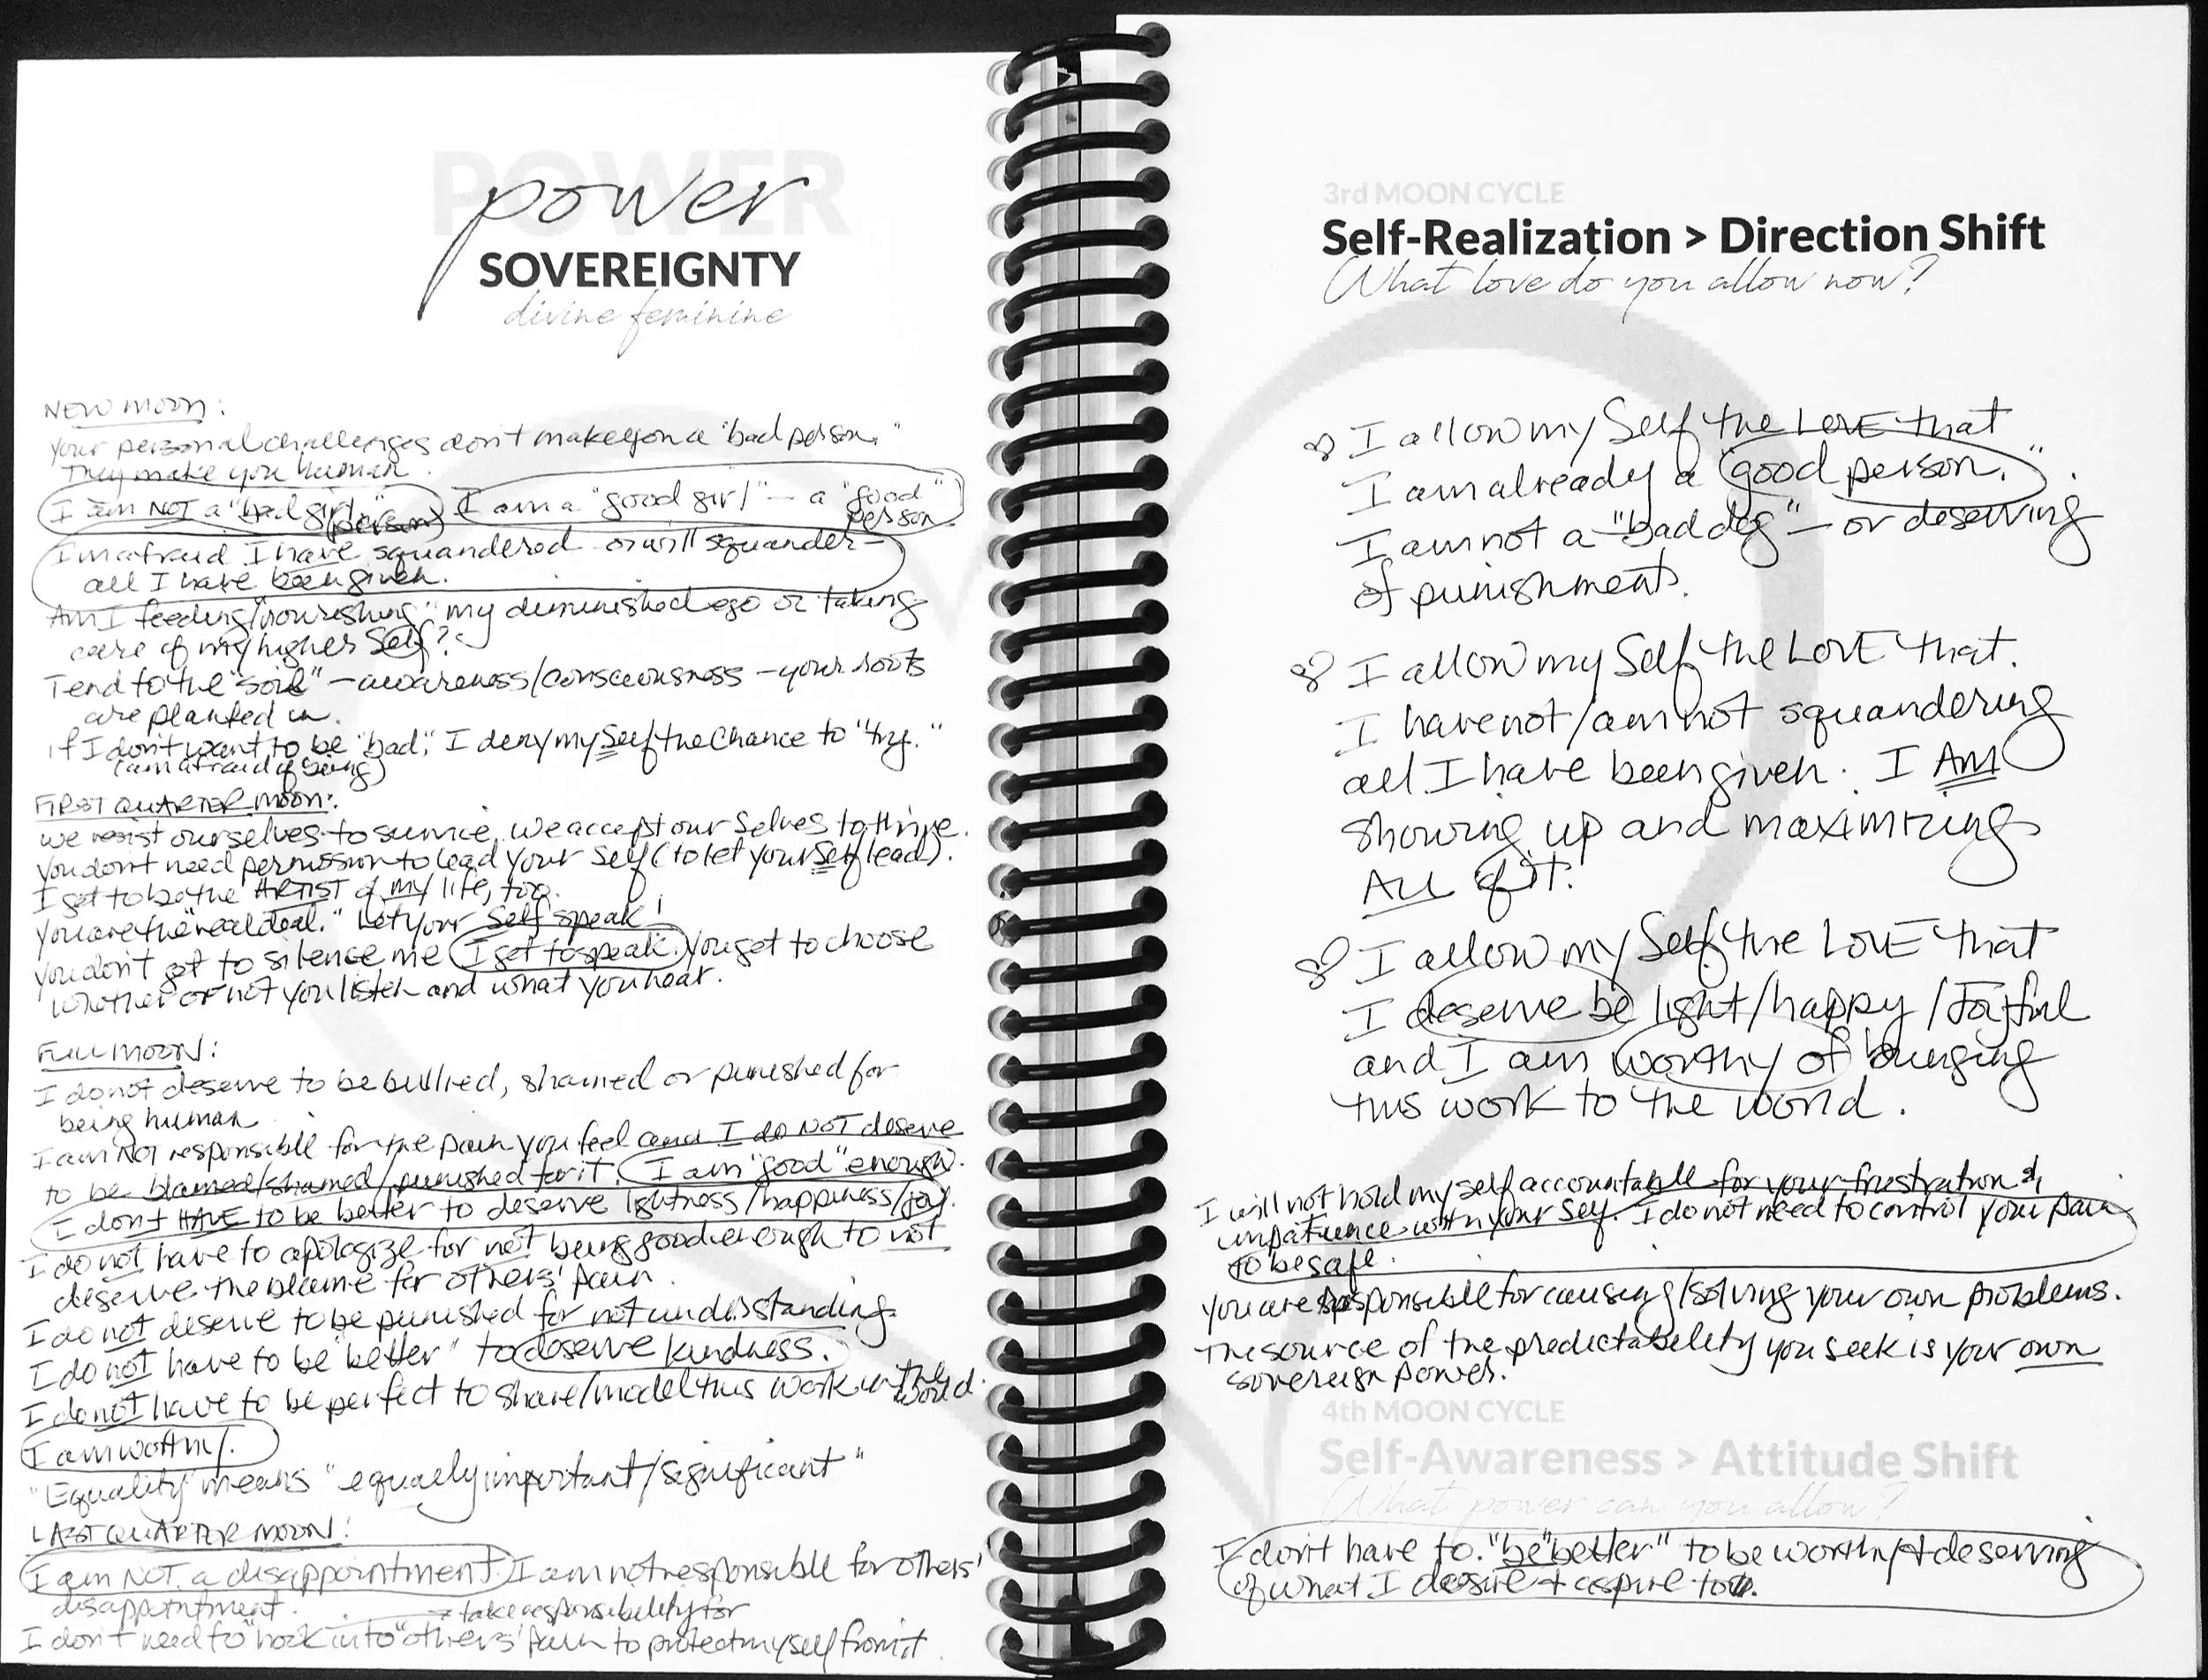 POWER
power
SOVEREIGNTY
divine feminine
NEW MOON:
Your personal challenges don't make you a "bad person."
They make you human.
I am NOT a "bad girl." (person) I am a "good girl" — a "good person"
I'm afraid I have squandered - or will squander -
all I have been given.
Am I feeding/"nourishing" my diminished ego or taking
care of my higher Self?
Tend to the "soil" - awareness/consciousness - your roots
are planted in.
If I don't want to be "bad," I deny my Self the chance to "try."
(am afraid of being)
FIRST QUARTER MOON:
We resist ourselves to survive, we accept our Selves to thrive.
You don't need permission to lead your Self (to let your Self lead).
I get to be the ARTIST of my life, too.
You are the "real deal." Let your Self speak!
You don't get to silence me. I get to speak. You get to choose
whether or not you listen and what you hear.
FULL MOON:
I do not deserve to be bullied, shamed or punished for
being human.
I am NOT responsible for the pain you feel and I do NOT deserve
to be blamed/shamed/punished for it. I am "good" enough.
I don't HAVE to be better to deserve lightness/happiness/joy.
I do not have to apologize for not being good enough to not
deserve the blame for others' pain.
I do not deserve to be punished for not understanding.
I do not have to be "better" to deserve kindness.
I do not have to be perfect to share/model this work in the world.
I am worthy.
"Equality" means "equally important/significant"
LAST QUARTER MOON:
I am NOT a disappointment. I am not responsible for others'
disappointment.
take responsibility for
I don't need to "hook into" others' pain to protect myself from it.
3rd MOON CYCLE
Self-Realization > Direction Shift
What love do you allow now?
I allow my Self the LOVE that
I am already a "good person."
I am not a "bad dog" — or deserving
of punishment.
I allow my Self the LOVE that
I have not/am not squandering
all I have been given. I AM
showing up and maximizing
ALL of it.
I allow my Self the LOVE that
I deserve be light/happy/Joyful
and I am worthy of bringing
this work to the world.
I will not hold myself accountable for your frustration &
impatience with your Self. I do not need to control your pain
to be safe.
You are responsible for causing/solving your own problems.
The source of the predictability you seek is your own
sovereign power.
4th MOON CYCLE
Self-Awareness > Attitude Shift
What power can you allow?
I don't have to "be" "better" to be worthy & deserving
of what I desire + aspire to.